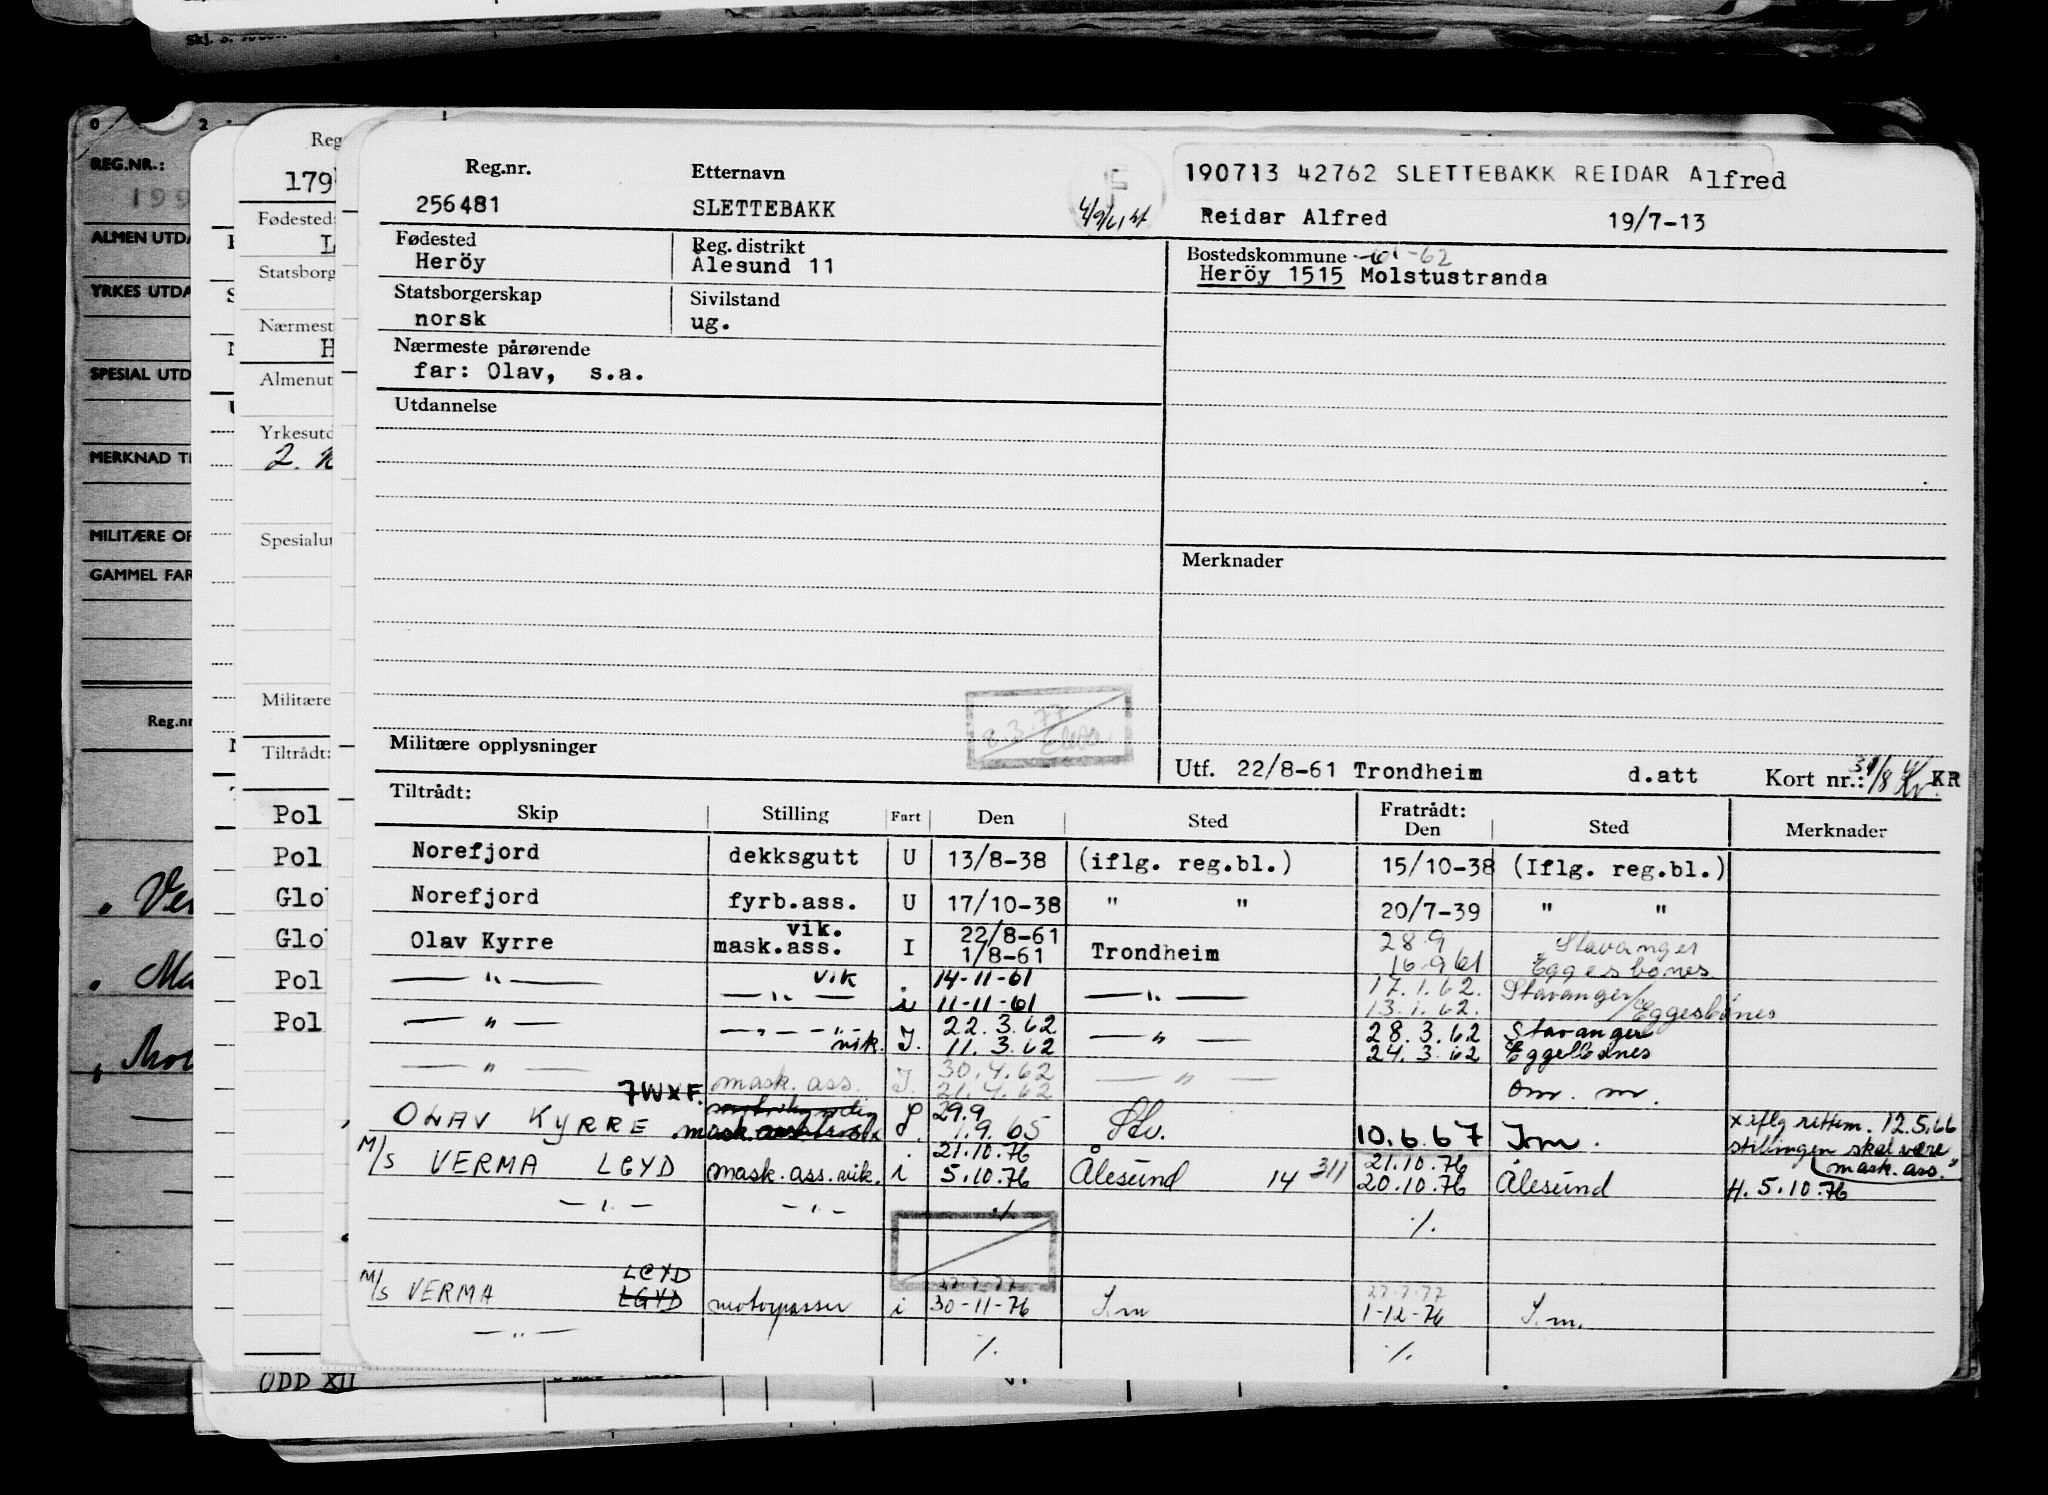 190713 42762 SLETTEBAKK REIDAR Alfred
Reg.nr. Etternavn
256481 SLETTEBAKK Reidar Alfred 19/7-13
Fødested Reg. distrikt Bostedskommune
Heröy Ålesund 11 Heröy 1515 Molstustranda
Statsborgerskap Sivilstand
norsk ug.
Nærmeste pårørende
far: Olav, s.a.
Utdannelse
Merknader
Militære opplysninger
Utf. 22/8-61 Trondheim d.att Kort nr.: KR
Tiltrådt: Fratrådt:
Skip Stilling Fart Den Sted Den Sted Merknader
Norefjord dekksgutt U 13/8-38 (iflg. reg.bl.) 15/10-38 (Iflg. reg.bl.)
Norefjord fyrb.ass. U 17/10-38 " " 20/7-39 " "
vik. 22/8-61 28 9 Stavanger
Olav Kyrre mask.ass. I 1/8-61 Trondheim 16.9 61 Eggesbønes
— " — vik 14-11-61 17.1.62. Stavanger/
— " — i 11-11-61 — " — 13.1.62. Eggesbønes
— " — — " — 22.3.62 28.3.62 Stavanger
vik. I. 11.3.62 — " — 24.3.62 Eggesbønes
— " — mask. ass. I. 30.4.62 — " — om. m.
21.4.62
7WXF. 29.9 x iflg rettem. 12.5.66
OLAV KYRRE 1.9.65 10.6.67 I.m. stillingen skal være
21.10.76 21.10.76 mask. ass."
M/S VERMA LGYD mask.ass.vik. i 5.10.76 Ålesund 14 311 20.10.76 Ålesund H. 5.10.76
— " — — " — ./. ./.
LCYD
M/S VERMA LGYD motorpasser i 30-11-76 I.m 1-12-76 I.m.
— " — ./. ./.
REG.NR.:
ALMEN UTDA
YRKES UTDA
SPESIAL UTD
MERKNAD TI
MILITÆRE OP
GAMMEL FAR
Reg.nr
179
Fødested:
Statsborg
Nærmest
H
Almenut
Yrkesutd
Spesialut
Militære
Tiltrådt:
Pol
Pol
Glo
Glo
Pol
Pol
ODD XII